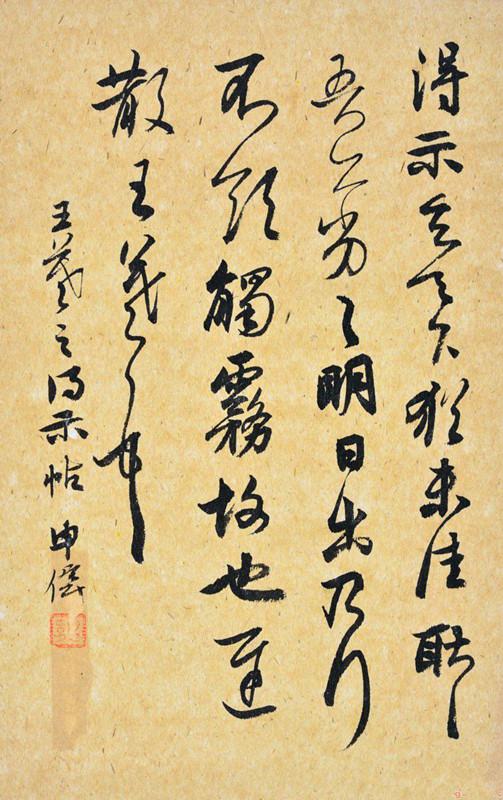 得示知足下猶未佳耿耿
吾亦劣劣明日出乃行
不欲觸霧故也遲
散王羲之頓首
王羲之得示帖 申